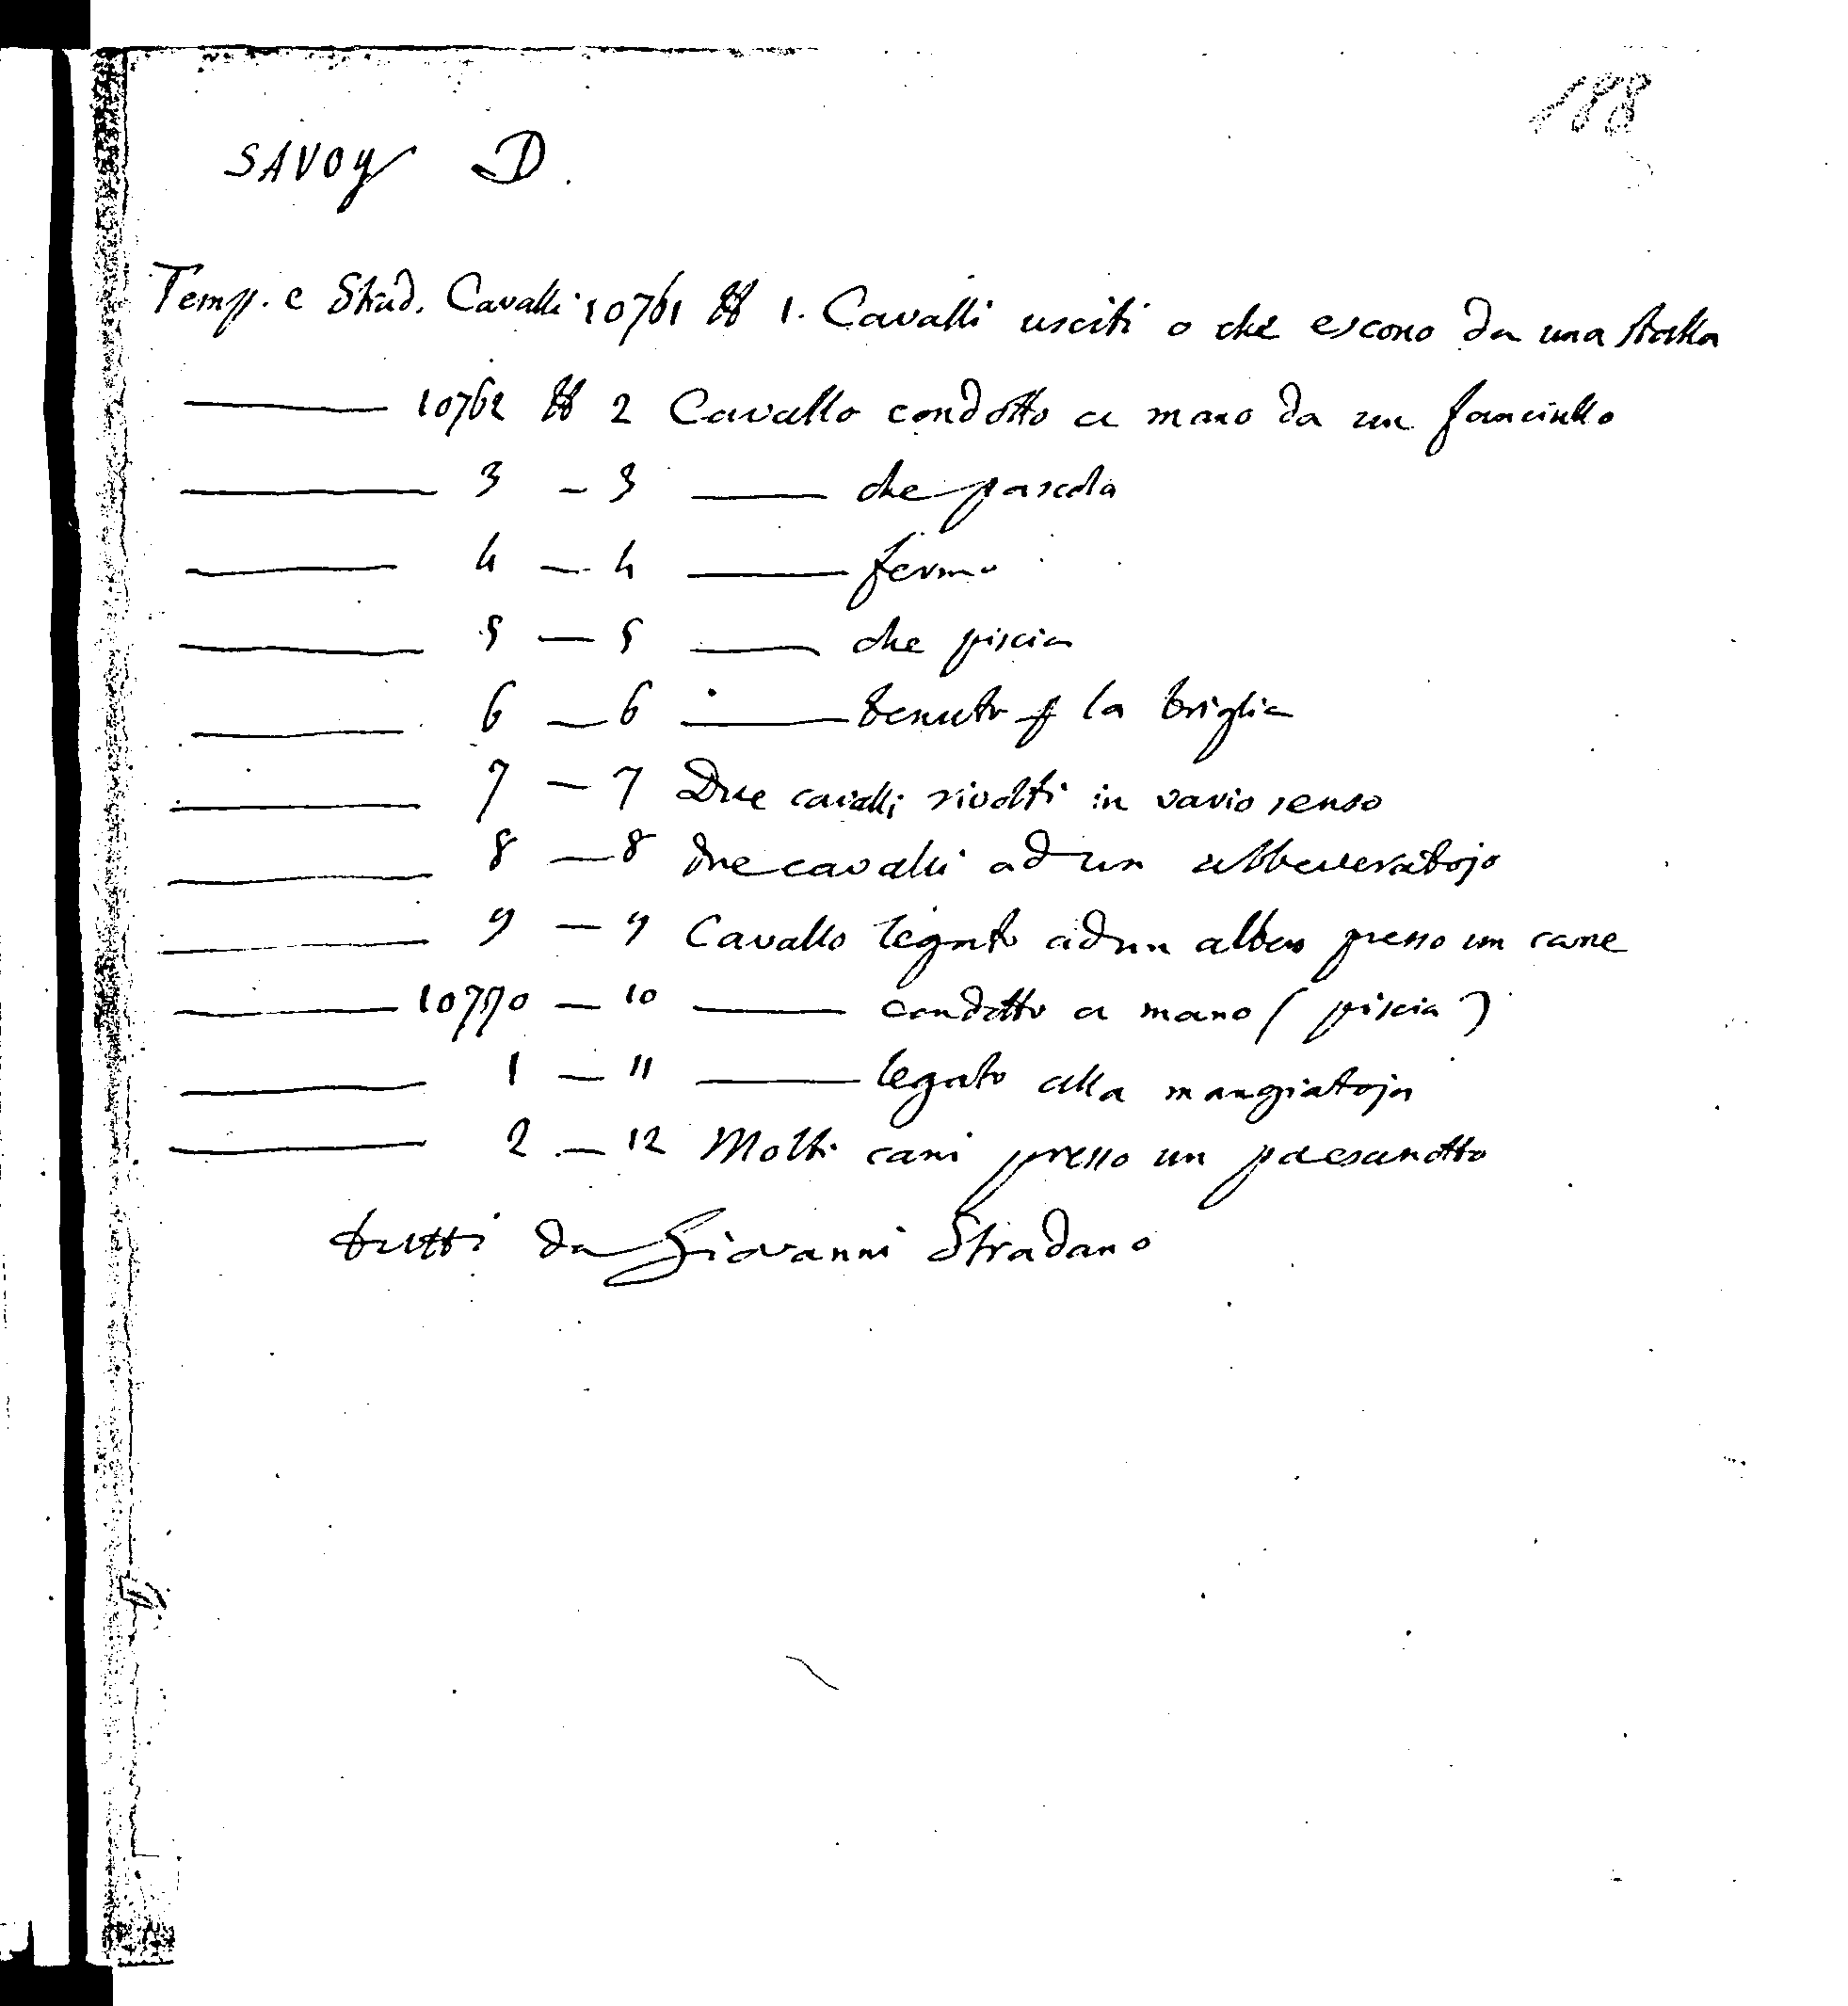 188
SAVOY D.
Temp. e Stud. Cavalli 10761 # 1. Cavalli usciti o che escono da una stalla
——— 10762 # 2 Cavallo condotto a mano da un fanciullo
——— 3 — 3 ——— che pascola
——— 4 — 4 ——— fermo
——— 5 — 5 ——— che piscia
——— 6 — 6 ——— tenuto p la briglia
——— 7 — 7 Due cavalli rivolti in vario senso
——— 8 — 8 Due cavalli ad un abbeveratojo
——— 9 — 9 Cavallo legato ad un albero presso un cane
——— 10770 — 10 ——— condotto a mano (piscia)
——— 1 — 11 ——— legato alla mangiatoja
——— 2 — 12 Molti cani presso un paesanotto
tutti da Giovanni Stradano